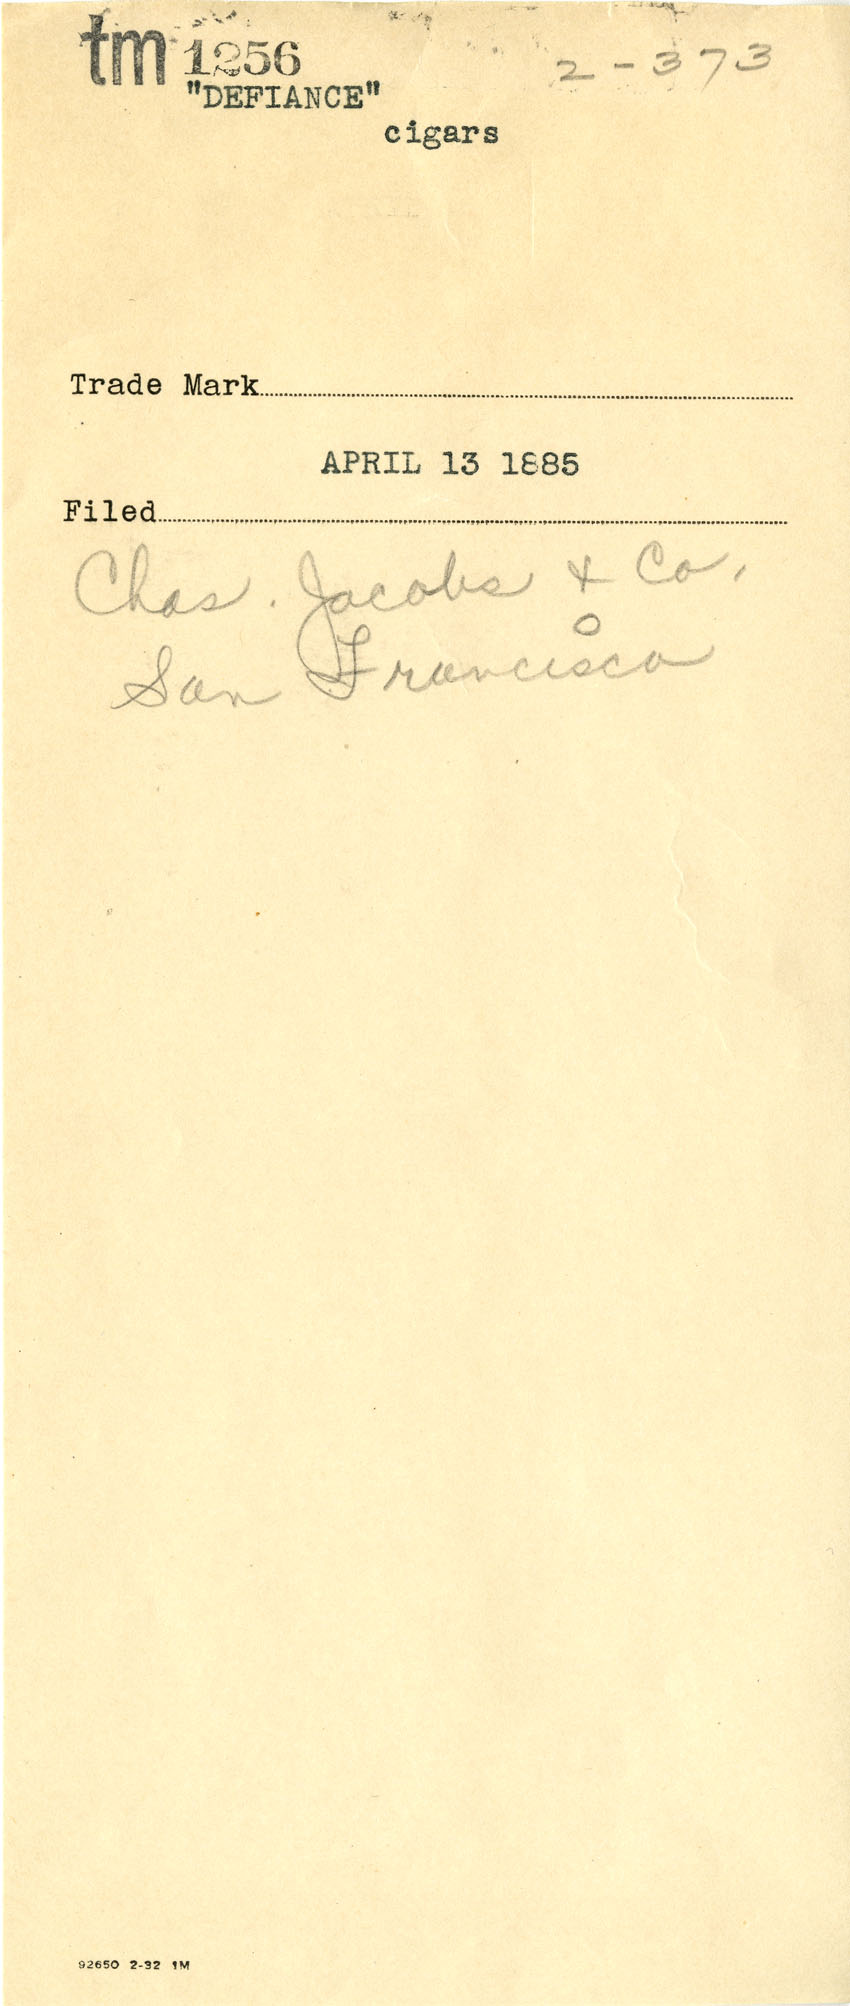 tm 1256 2-373
"DEFIANCE"
cigars
Trade Mark
APRIL 13 1885
Filed
Chas. Jacobs & Co,
San Francisco
92650 2-32 1M